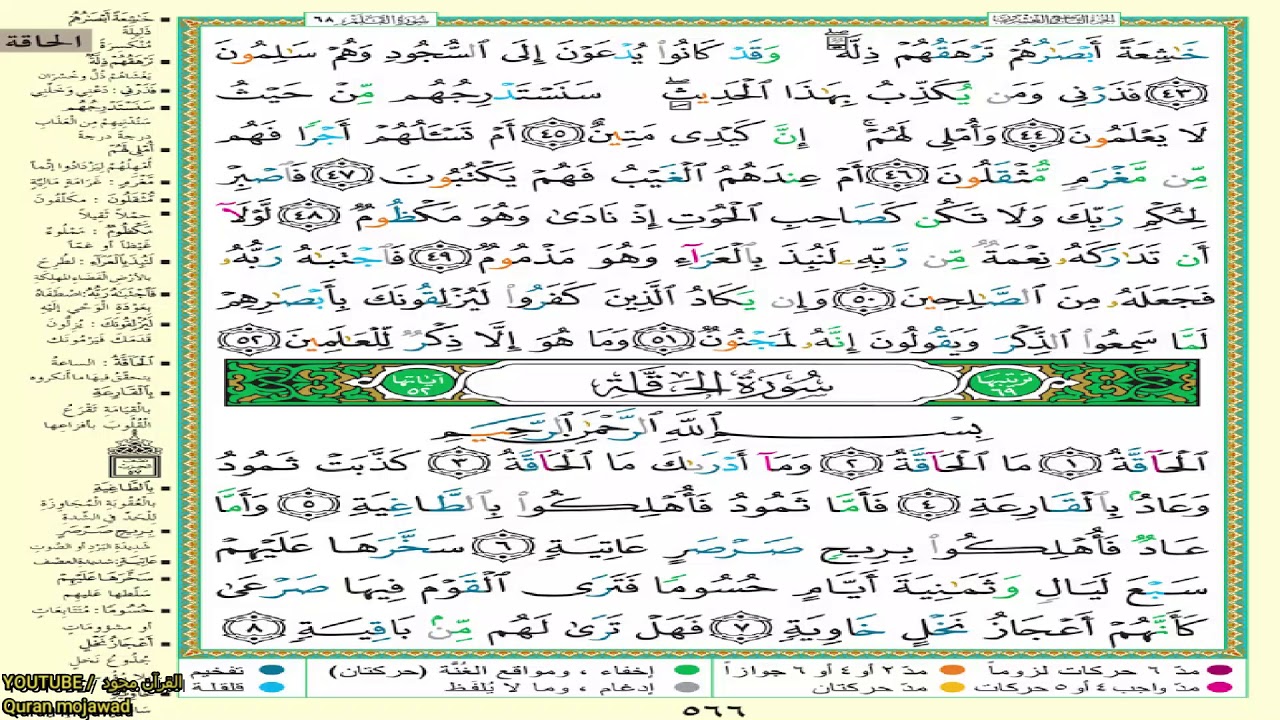 سورة القلم ٦٨
الجزء التاسع والعشرون
الحاقة
خَٰشِعَةً أَبْصَٰرُهُمْ تَرْهَقُهُمْ ذِلَّةٌ ۖ وَقَدْ كَانُوا۟ يُدْعَوْنَ إِلَى ٱلسُّجُودِ وَهُمْ سَٰلِمُونَ
﴿٤٣﴾ فَذَرْنِى وَمَن يُكَذِّبُ بِهَٰذَا ٱلْحَدِيثِ ۖ سَنَسْتَدْرِجُهُم مِّنْ حَيْثُ
لَا يَعْلَمُونَ ﴿٤٤﴾ وَأُمْلِى لَهُمْ ۚ إِنَّ كَيْدِى مَتِينٌ ﴿٤٥﴾ أَمْ تَسْـَٔلُهُمْ أَجْرًا فَهُم
مِّن مَّغْرَمٍ مُّثْقَلُونَ ﴿٤٦﴾ أَمْ عِندَهُمُ ٱلْغَيْبُ فَهُمْ يَكْتُبُونَ ﴿٤٧﴾ فَٱصْبِرْ
لِحُكْمِ رَبِّكَ وَلَا تَكُن كَصَاحِبِ ٱلْحُوتِ إِذْ نَادَىٰ وَهُوَ مَكْظُومٌ ﴿٤٨﴾ لَّوْلَآ
أَن تَدَٰرَكَهُۥ نِعْمَةٌ مِّن رَّبِّهِۦ لَنُبِذَ بِٱلْعَرَآءِ وَهُوَ مَذْمُومٌ ﴿٤٩﴾ فَٱجْتَبَٰهُ رَبُّهُۥ
فَجَعَلَهُۥ مِنَ ٱلصَّٰلِحِينَ ﴿٥٠﴾ وَإِن يَكَادُ ٱلَّذِينَ كَفَرُوا۟ لَيُزْلِقُونَكَ بِأَبْصَٰرِهِمْ
لَمَّا سَمِعُوا۟ ٱلذِّكْرَ وَيَقُولُونَ إِنَّهُۥ لَمَجْنُونٌ ﴿٥١﴾ وَمَا هُوَ إِلَّا ذِكْرٌ لِّلْعَٰلَمِينَ ﴿٥٢﴾
ترتيبها ٦٩ سُورَةُ الحَاقَّةِ آياتها ٥٢
بِسْمِ ٱللَّهِ ٱلرَّحْمَٰنِ ٱلرَّحِيمِ
ٱلْحَآقَّةُ ﴿١﴾ مَا ٱلْحَآقَّةُ ﴿٢﴾ وَمَآ أَدْرَىٰكَ مَا ٱلْحَآقَّةُ ﴿٣﴾ كَذَّبَتْ ثَمُودُ
وَعَادٌۢ بِٱلْقَارِعَةِ ﴿٤﴾ فَأَمَّا ثَمُودُ فَأُهْلِكُوا۟ بِٱلطَّاغِيَةِ ﴿٥﴾ وَأَمَّا
عَادٌ فَأُهْلِكُوا۟ بِرِيحٍ صَرْصَرٍ عَاتِيَةٍ ﴿٦﴾ سَخَّرَهَا عَلَيْهِمْ
سَبْعَ لَيَالٍ وَثَمَٰنِيَةَ أَيَّامٍ حُسُومًا فَتَرَى ٱلْقَوْمَ فِيهَا صَرْعَىٰ
كَأَنَّهُمْ أَعْجَازُ نَخْلٍ خَاوِيَةٍ ﴿٧﴾ فَهَلْ تَرَىٰ لَهُم مِّنۢ بَاقِيَةٍ ﴿٨﴾
خَٰشِعَةً أَبْصَٰرُهُمْ
ذليلة
منكسرة
تَرْهَقُهُمْ ذِلَّةٌ
يغشاهم ذل وخسران
فَذَرْنِى : دعني وخلني
سَنَسْتَدْرِجُهُم
سندنيهم من العذاب
درجة درجة
أُمْلِى لَهُمْ
أمهلهم ليزدادوا إثما
مَّغْرَمٍ : غرامة مالية
مُّثْقَلُونَ : مكلفون
حملا ثقيلا
مَكْظُومٌ : مملوء
غيظا أو غما
لَنُبِذَ بِالْعَرَآءِ : لطرح
بالأرض الفضاء المهلكة
فَاجْتَبَٰهُ رَبُّهُ : اصطفاه
بعودة الوحي إليه
لَيُزْلِقُونَكَ : يزلون
قدمك فيرمونك
الحَآقَّةُ : الساعة
يتحقق فيها ما أنكروه
بِالْقَارِعَةِ
بالقيامة تقرع
القلوب بأفزاعها
بِالطَّاغِيَةِ
بالعقوبة المجاوزة
للحد في الشدة
بِرِيحٍ صَرْصَرٍ
شديدة البرد أو الصوت
عَاتِيَةٍ : شديدة العصف
سَخَّرَهَا عَلَيْهِمْ
سلطها عليهم
حُسُومًا : متتابعات
أو مشؤومات
أَعْجَازُ نَخْلٍ
جذوع نخل
مدّ ٦ حركات لزوماً مدّ ٢ أو ٤ أو ٦ جوازاً إخفاء ، ومواقع الغُنَّة (حركتان) تفخيم
مدّ واجب ٤ أو ٥ حركات مدّ حركتان إدغام ، وما لا يُلفَظ قلقلة
٥٦٦
YOUTUBE / القرآن مجوّد
Quran mojawad